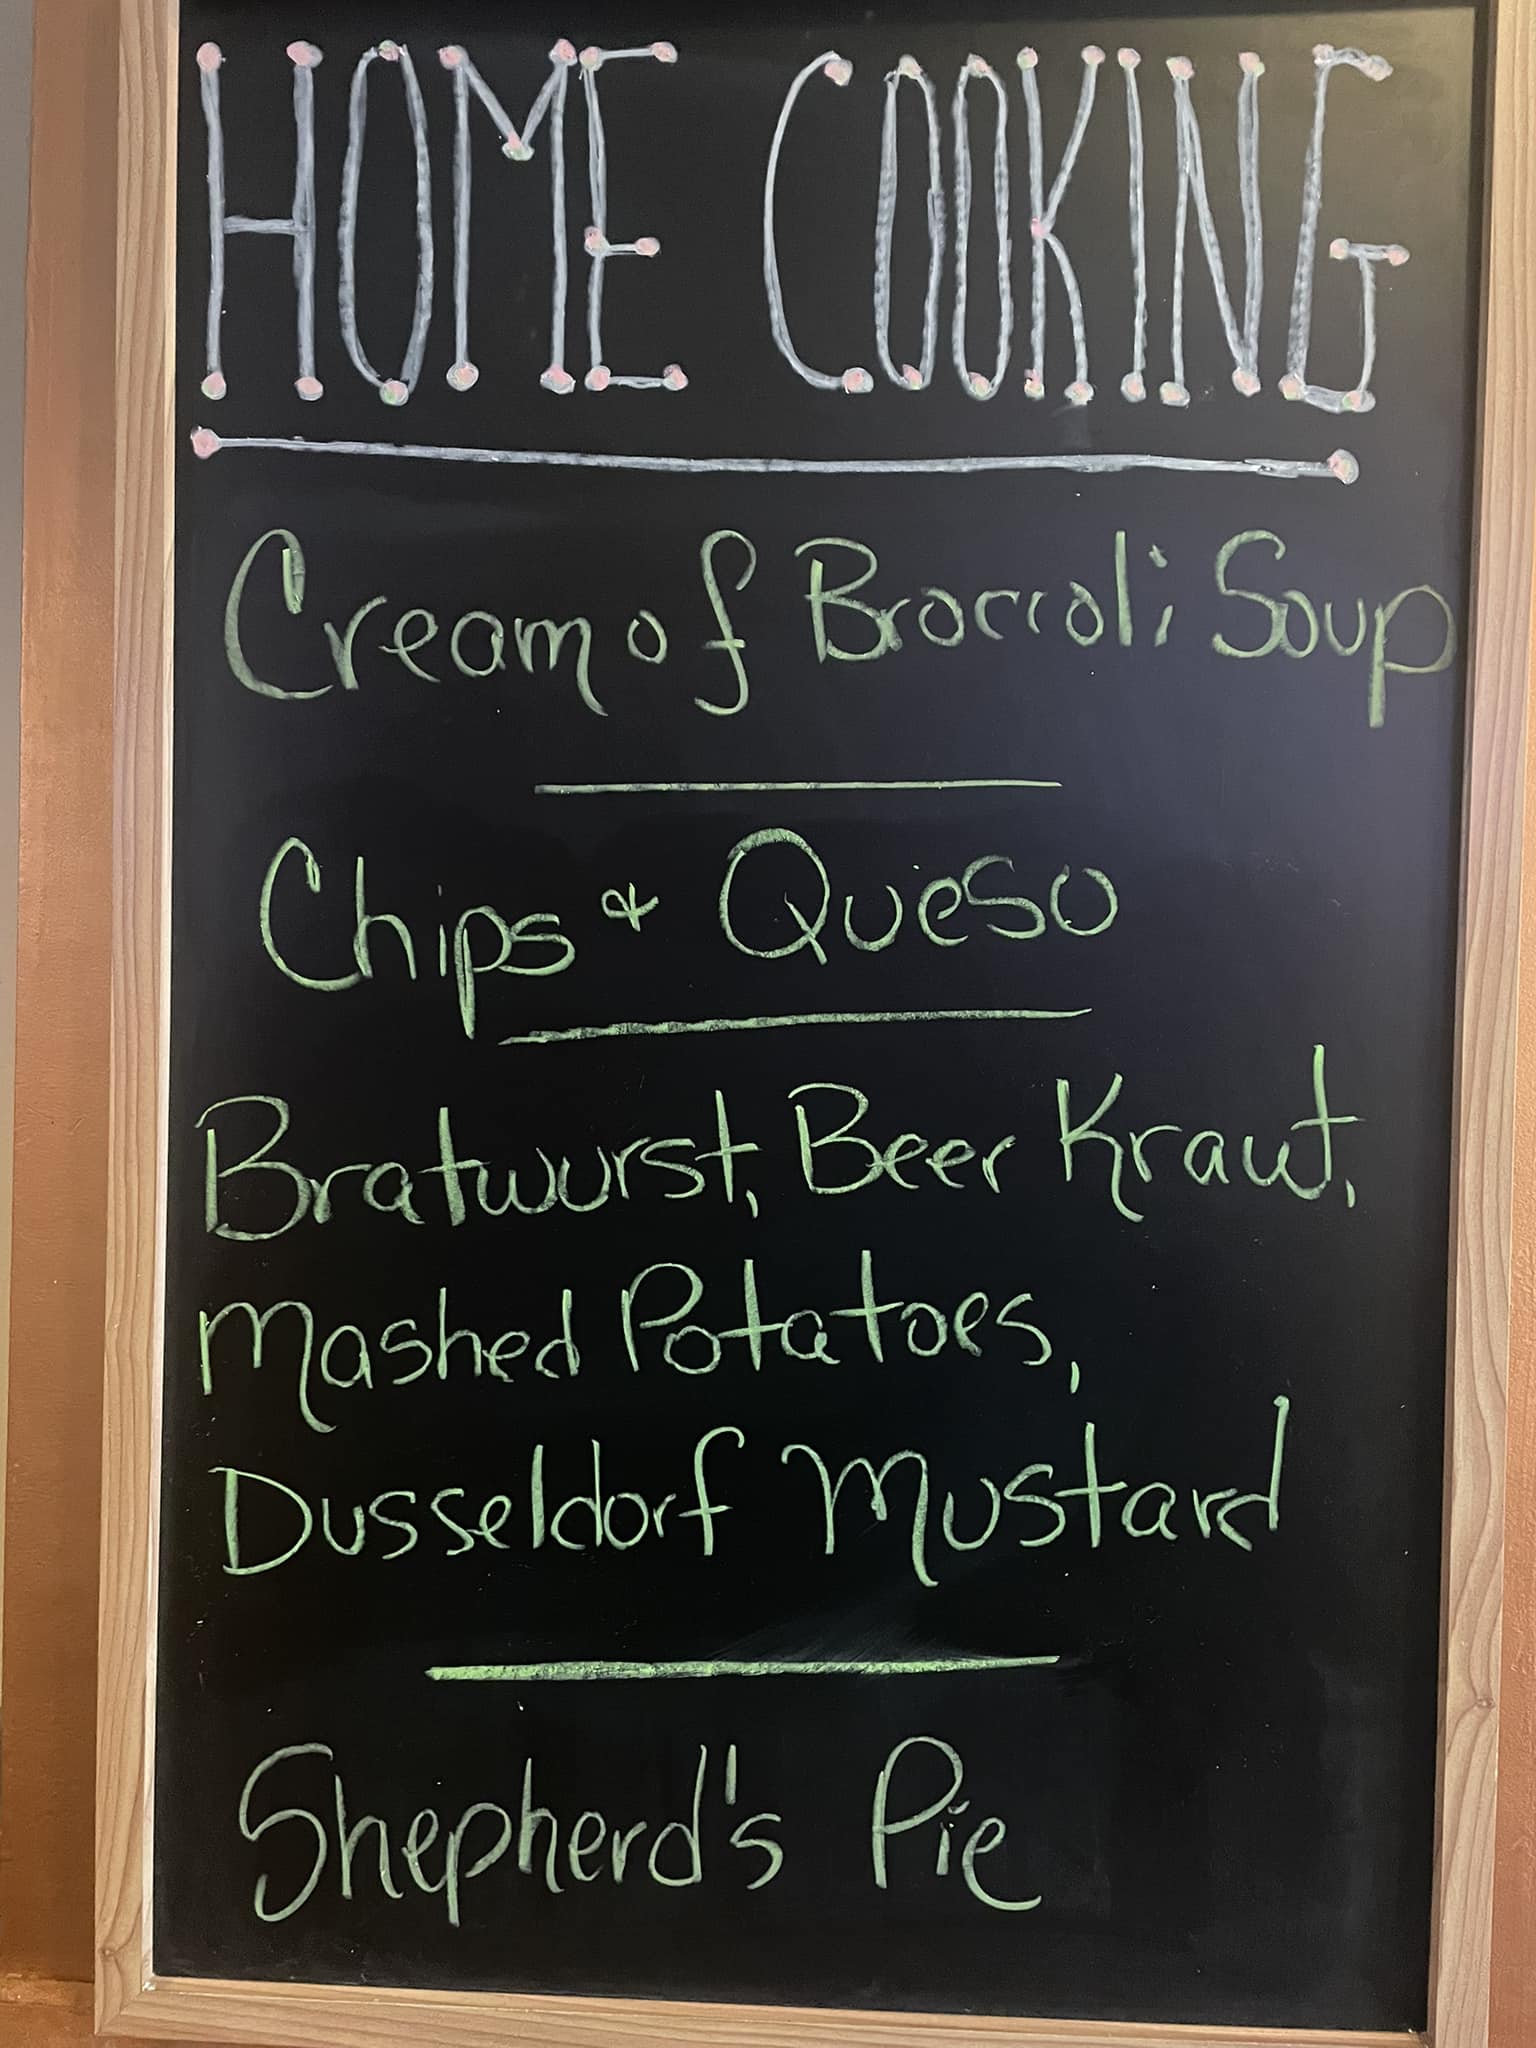 HOME COOKING
Cream of Broccoli Soup
Chips & Queso
Bratwurst, Beer Kraut,
Mashed Potatoes,
Dusseldorf Mustard
Shepherd's Pie